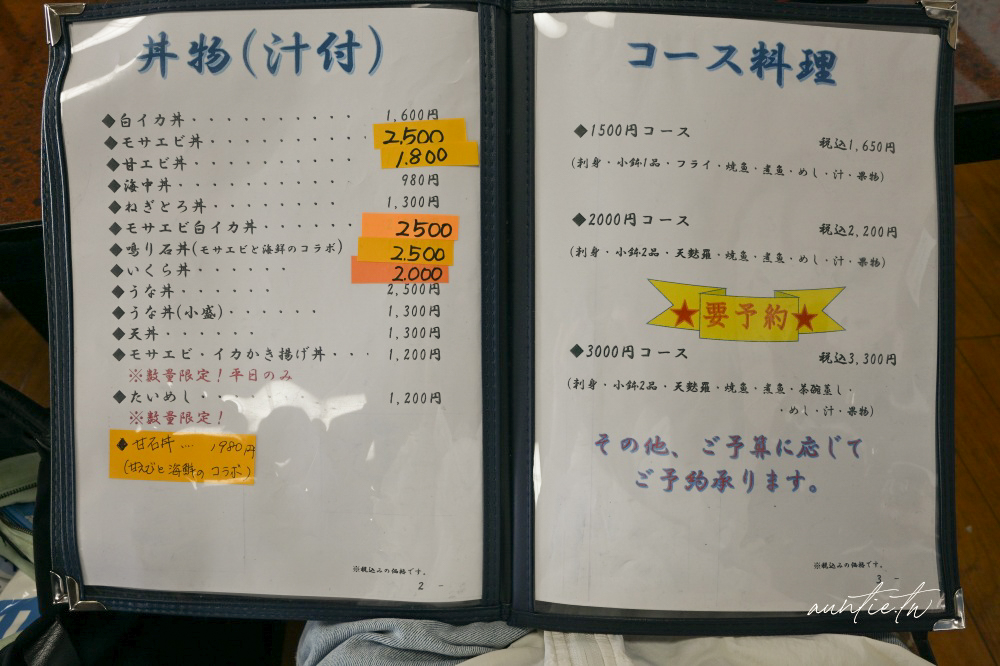 丼物(汁付)
◆白イカ丼・・・・・・・・・・ 1,600円
◆モサエビ丼・・・・・・・・・ 2,500
◆甘エビ丼・・・・・・・・・・ 1,800
◆海中丼・・・・・・・・・・・ 980円
◆ねぎとろ丼・・・・・・・・・ 1,300円
◆モサエビ白イカ丼・・・・・・ 2500
◆鳴り石丼(モサエビと海鮮のコラボ) 2,500
◆いくら丼・・・・・・ 2,000
◆うな丼・・・・・・ 2,500円
◆うな丼(小盛)・・・・・・ 1,300円
◆天丼・・・・・・ 1,300円
◆モサエビ・イカかき揚げ丼・・・ 1,200円
※数量限定!平日のみ
◆たいめし・・・・・・・・・・ 1,200円
※数量限定!
◆甘石丼… 1980円
(甘えびと海鮮のコラボ)
※税込みの価格です。
2 -
コース料理
◆1500円コース 税込1,650円
(刺身・小鉢1品・フライ・焼魚・煮魚・めし・汁・果物)
◆2000円コース 税込2,200円
(刺身・小鉢2品・天麩羅・焼魚・煮魚・めし・汁・果物)
★要予約★
◆3000円コース 税込3,300円
(刺身・小鉢2品・天麩羅・焼魚・煮魚・茶碗蒸し・
・めし・汁・果物)
その他、ご予算に応じて
ご予約承ります。
※税込みの価格です。
3 -
auntie.tw